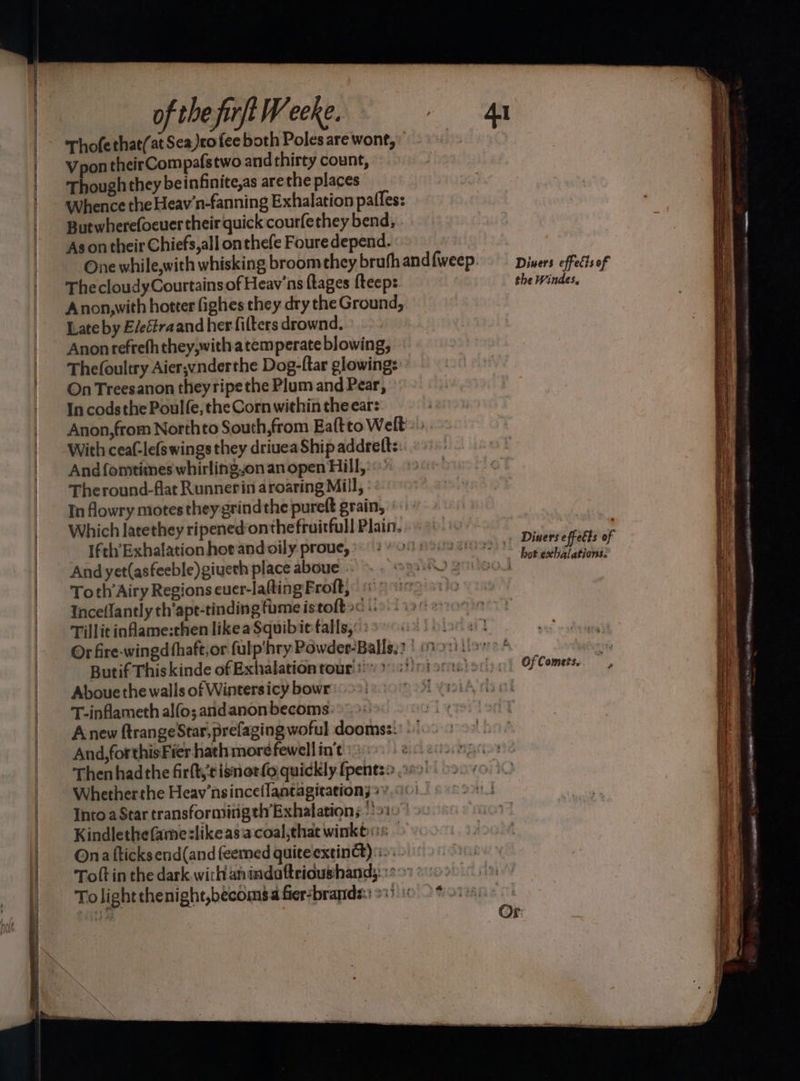 of the firſt Weeke.
41
Thoſe that (at Sea) to ſee both Poles are wont,
Vpon their Compaſs two and thirty count,
Though they be infinite, as are the places
Whence the Heav'n-fanning Exhalation paſſes:
But whereſoeuer their quick courſe they bend,
As on their Chiefs, all on theſe Foure depend.
One while, with whisking broom they bruſh and ſweep
The cloudy Courtains of Heav'ns ſtages ſteep:
Anon, with hotter ſighes they dry the Ground,
Late by Electra and her ſiſters drownd.
Anon refreſh they, with a temperate blowing,
The ſoultry Aier, vnder the Dog-ſtar glowing:
On Trees anon they ripe the Plum and Pear,
In cods the Poulſe, the Corn within the ear:
Anon, from North to South, from Eaſt to Weſt
With ceaſ-leſs wings they driue a Ship addreſt:
And ſomtimes whirling, on an open Hill,
The round-flat Runner in a roaring Mill,
In flowry motes they grind the pureſt grain,
Which late they ripened on the fruitfull Plain.
If th'Exhalation hot and oily proue,
And yet (as feeble) giueth place aboue
To th'Airy Regions euer-laſting Froſt,
Inceſſantly th'apt-tinding fume is toſt
Till it inflame: then like a Squib it falls,
Or fire-wingd ſhaft, or ſulp'hry Powder-Balls.
But if This kinde of Exhalation tour
Aboue the walls of Winters icy bowr
T-inflameth alſo; and anon becoms
A new ſtrange Star, preſaging woful dooms:
And, for this Fier hath more fewell in't
Then had the firſt, 't is not ſo quickly ſpent:
Whether the Heav'ns inceſſant agitation,
Into a Star transforming th'Exhalation,
Kindle the ſame: like as a coal, that winkt
On a ſticks end (and ſeemed quite extinct)
Toſt in the dark with an induſtrious hand,
To light the night, becoms a fier-brand:
Or
Diuers effects of
the Windes.
Diuers effects of
hot exhalations.
Of Comets.